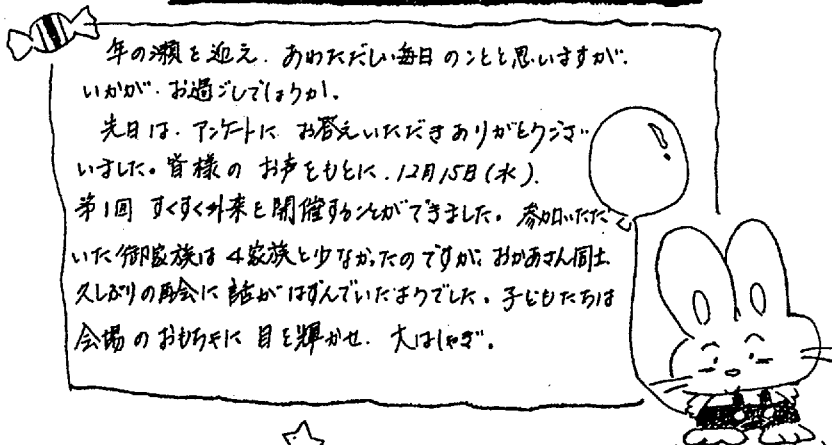 年の瀬を迎え、あわただしい毎日のことと思いますが、
いかが、お過ごしでしょうか。
先日は、アンケートに お答えいただきありがとうござ
いました。皆様の お声をもとに、12月15日(水)、
第1回 すくすく外来を開催することができました。参加いただ
いた御家族は4家族と少なかったのですが、おかあさん同士
久しぶりの再会に話がはずんでいたようでした。子どもたちは
会場のおもちゃに目を輝かせ、大はしゃぎ。